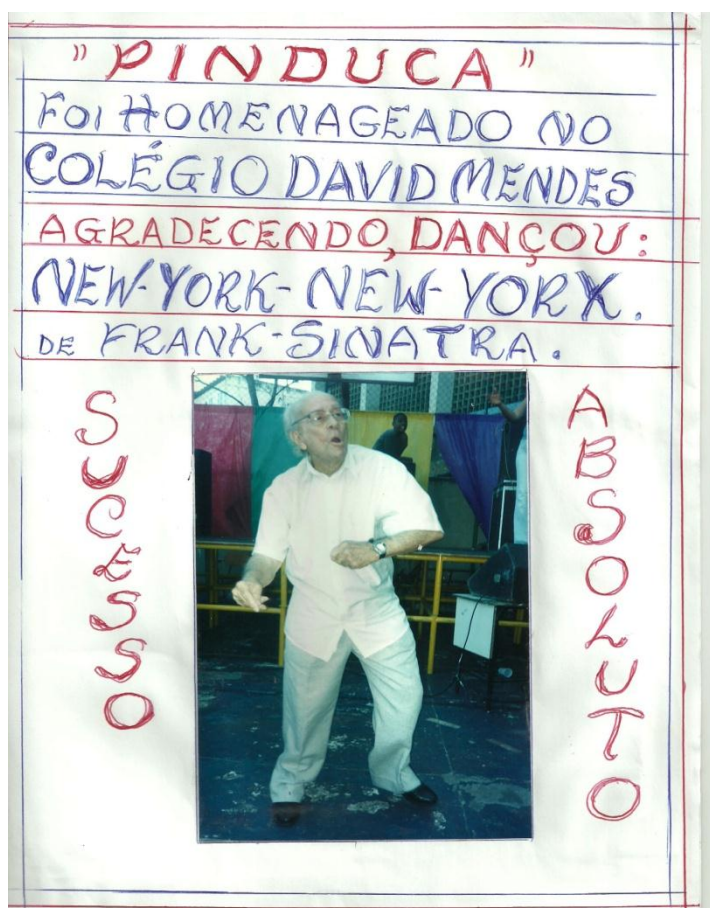 "PINDUCA"
FOI HOMENAGEADO NO
COLÉGIO DAVID MENDES
AGRADECENDO, DANÇOU:
NEW-YORK-NEW-YORK.
DE FRANK-SINATRA.
SUCESSO
ABSOLUTO